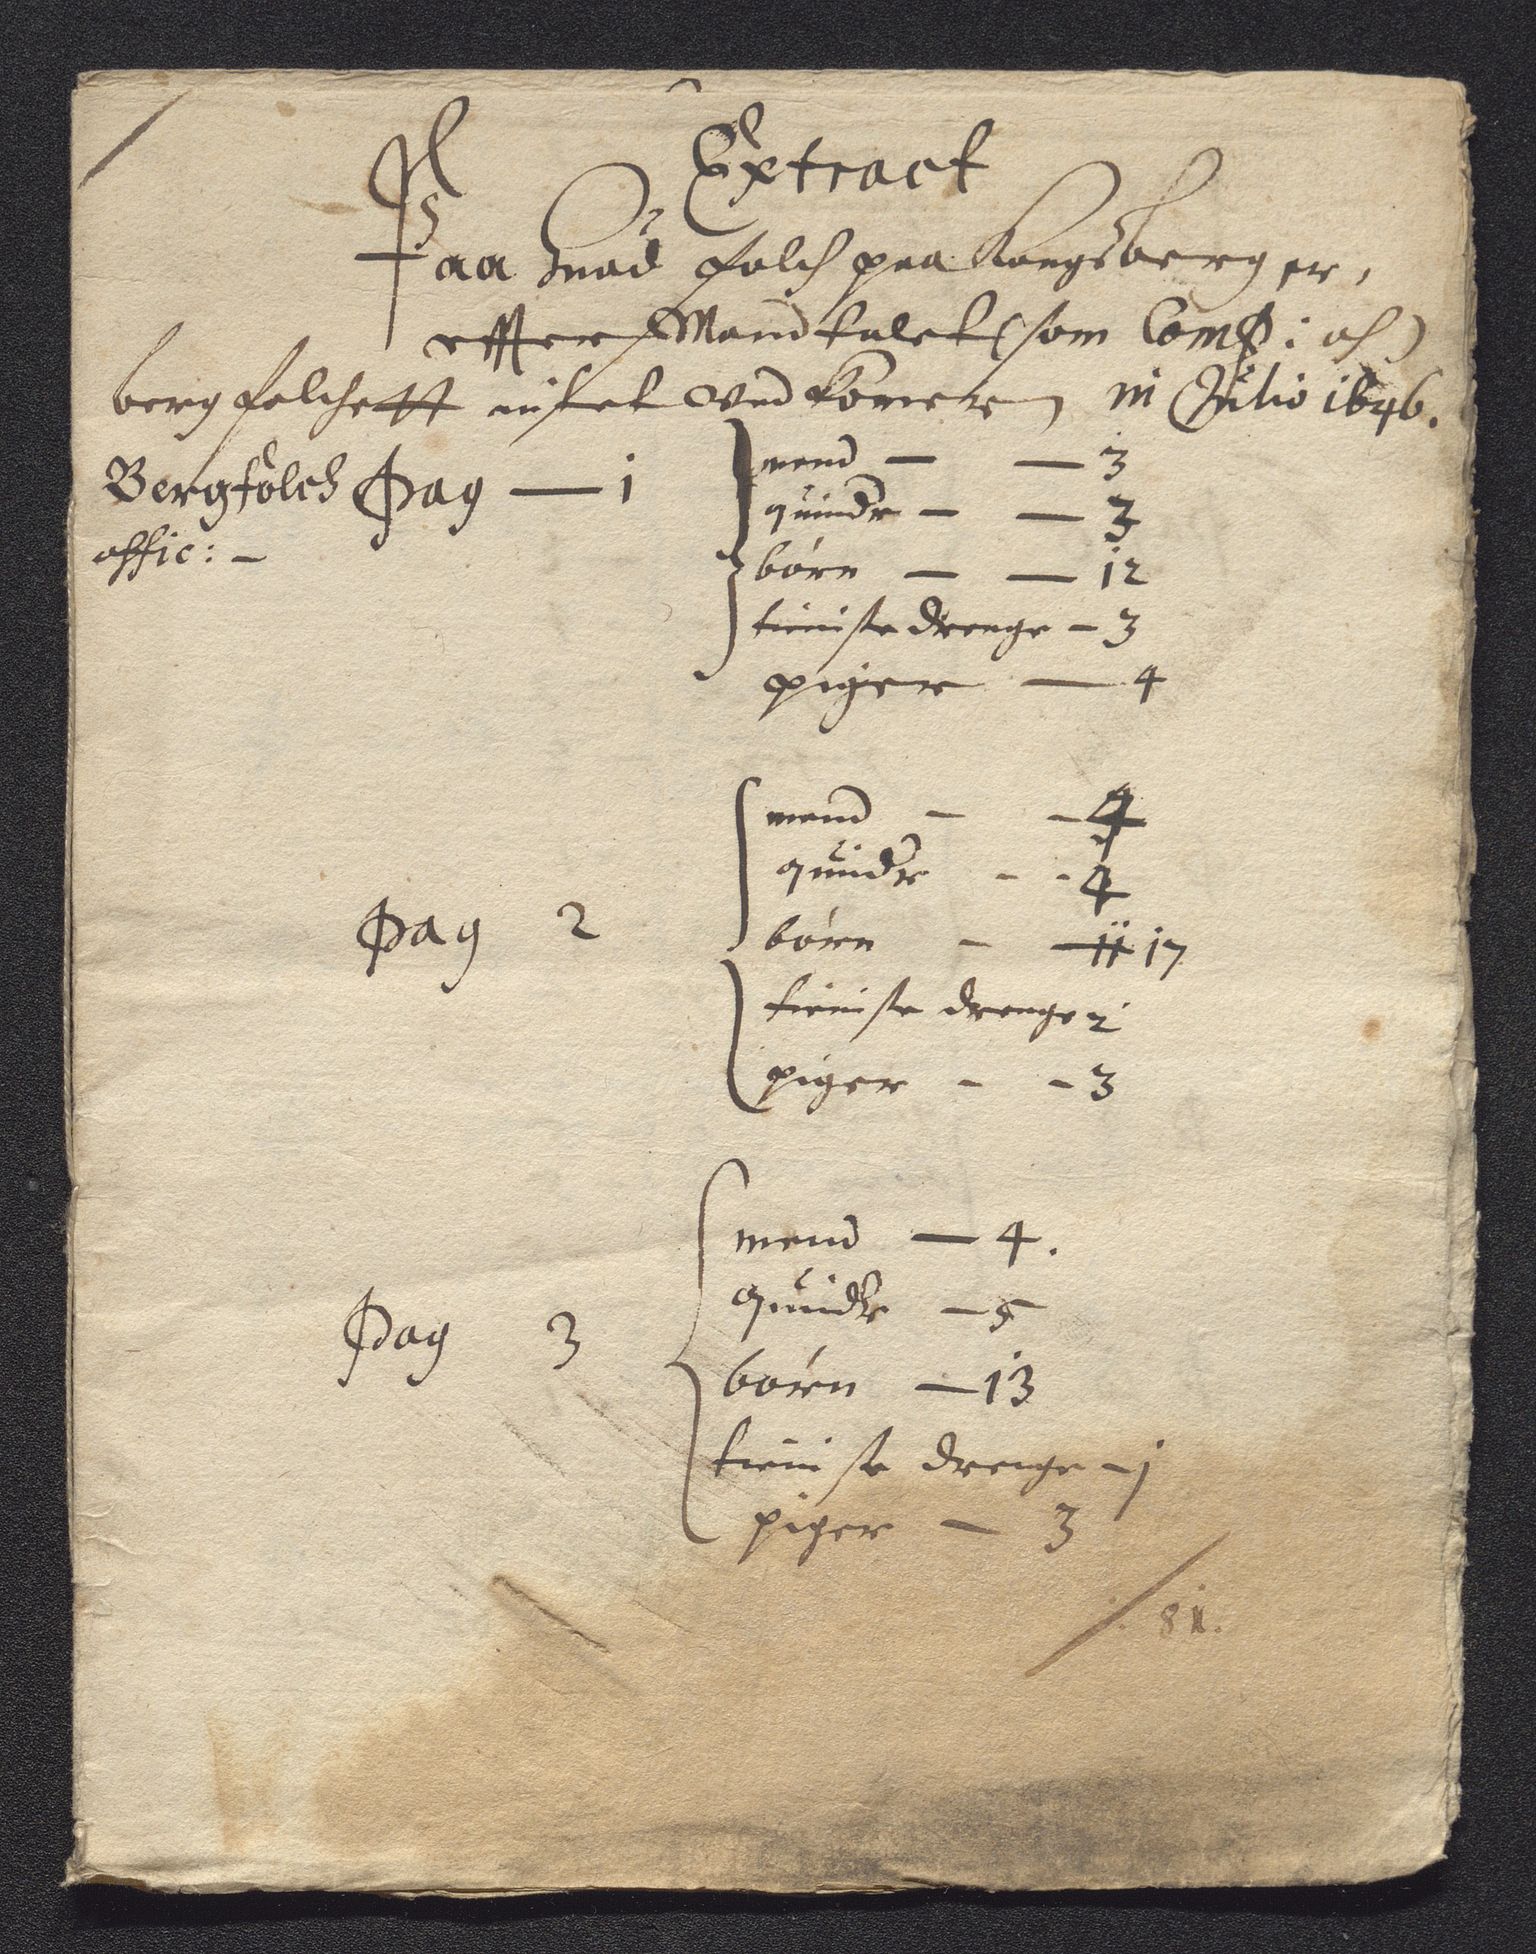 Extract
Paa huad folch paa Kongsberg er,
effter Mandtalet (som Comp: och
bergfolchett intet ved kommer) in Julio 1646.
Bergfolch Pag — 1
offic: —
mend — — 3
quinder — — 3
børn — — 12
tieniste drenge — 3
piger — 4
Pag 2
mend — — 4
quinder — — 4
børn — — 11 17
tieniste drenge 2
piger — — 3
Pag 3
mend — 4.
quinder — 5
børn — 13
tieniste drenge — 1
piger — 3
81.